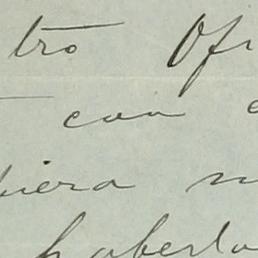 tro Ofi
con
biera
haberla